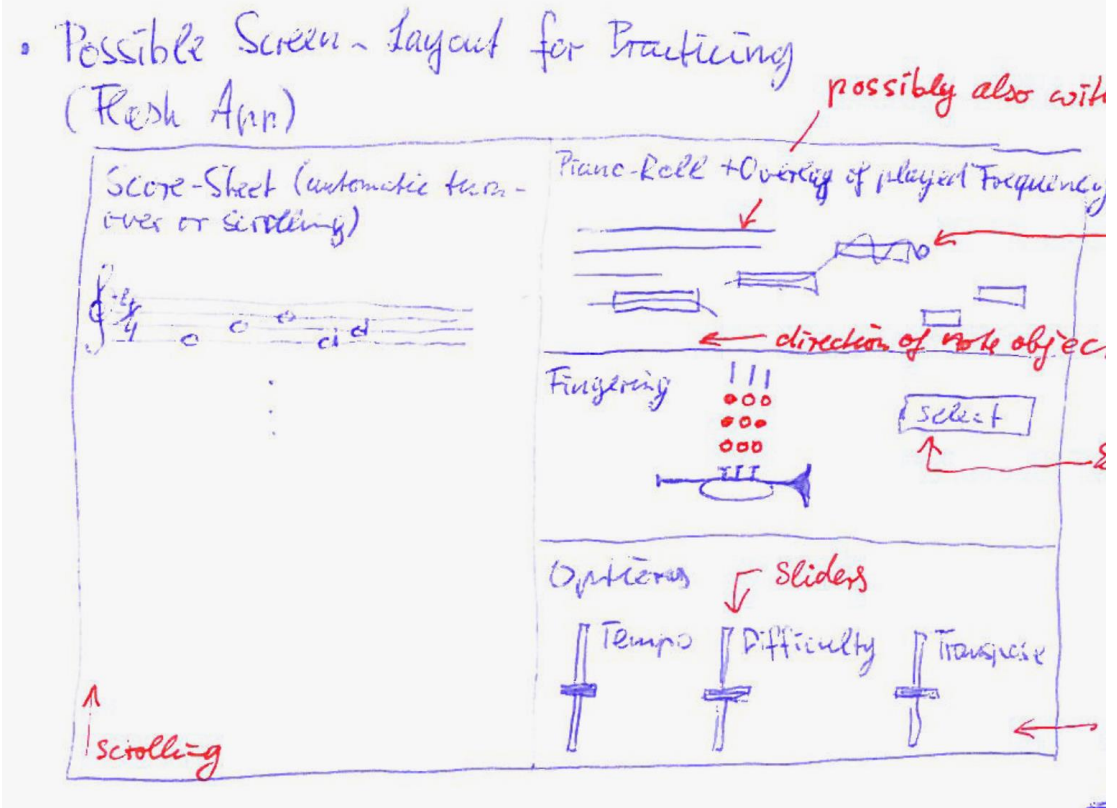 • Possible Screen-Layout for Practicing
(Flash App)
possibly also with
Score-Sheet (automatic turn-
over or scrolling)
4
4
Piano-Roll + Overlay of played Frequency
direction of note objec
Fingering
select
Options
Sliders
Tempo
Difficulty
Transpose
scrolling